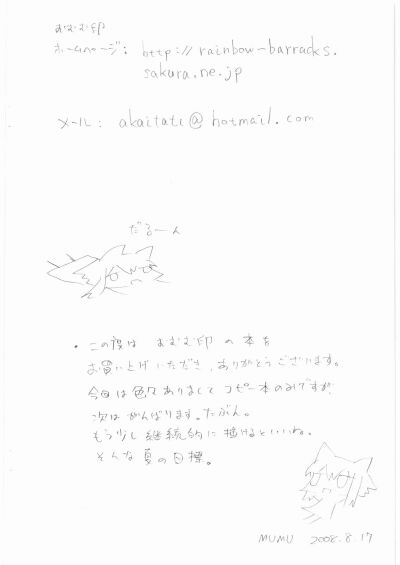 おむむ印
ホームページ: http://rainbow-barracks.
sakura.ne.jp
メール: akaitate@hotmail.com
だるーん
・この度は おむむ印 の本を
お買い上げいただき、ありがとうございます。
今回は色々ありまして コピー本のみですが、
次は がんばります。たぶん。
もう少し継続的に描けるといいね。
そんな夏の目標。
MUMU 2008.8.17